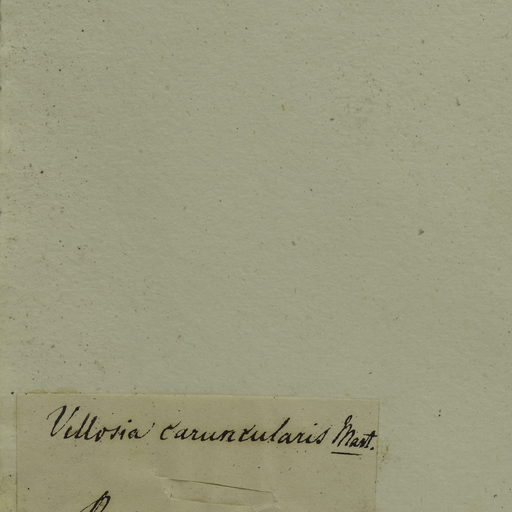 Vellosia caruncularis Mart.